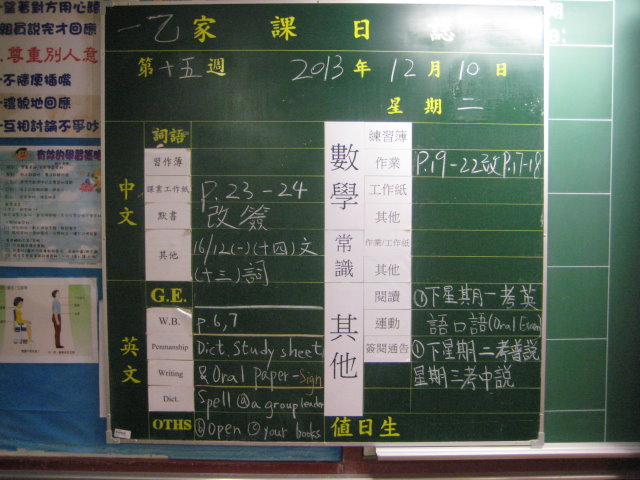 望著對方用心聽
組員說完才回應
尊重別人意
不隨便插嘴
禮貌地回應
互相討論不爭吵
一乙家課日誌
第十五週 2013年12月10日
星期二
中文
詞語
習作簿
課業工作紙 p.23-24
默書 改簽
其他 16/12(一)(十四)文
(十三)詞
英文
G.E.
W.B. p.6,7
Penmanship Dict. Study sheet
Writing & Oral Paper-Sign
Dict. Spell ⓐa group leader
OTHS ⓑOpen ⓒyour books
數學
練習簿
作業 P.19-22改P.17-18
工作紙
其他
常識
作業/工作紙
其他
其他
閱讀 ①下星期一考英
運動 語口語(Oral Exam)
簽閱通告 ①下星期二考普說
星期三考中説
值日生